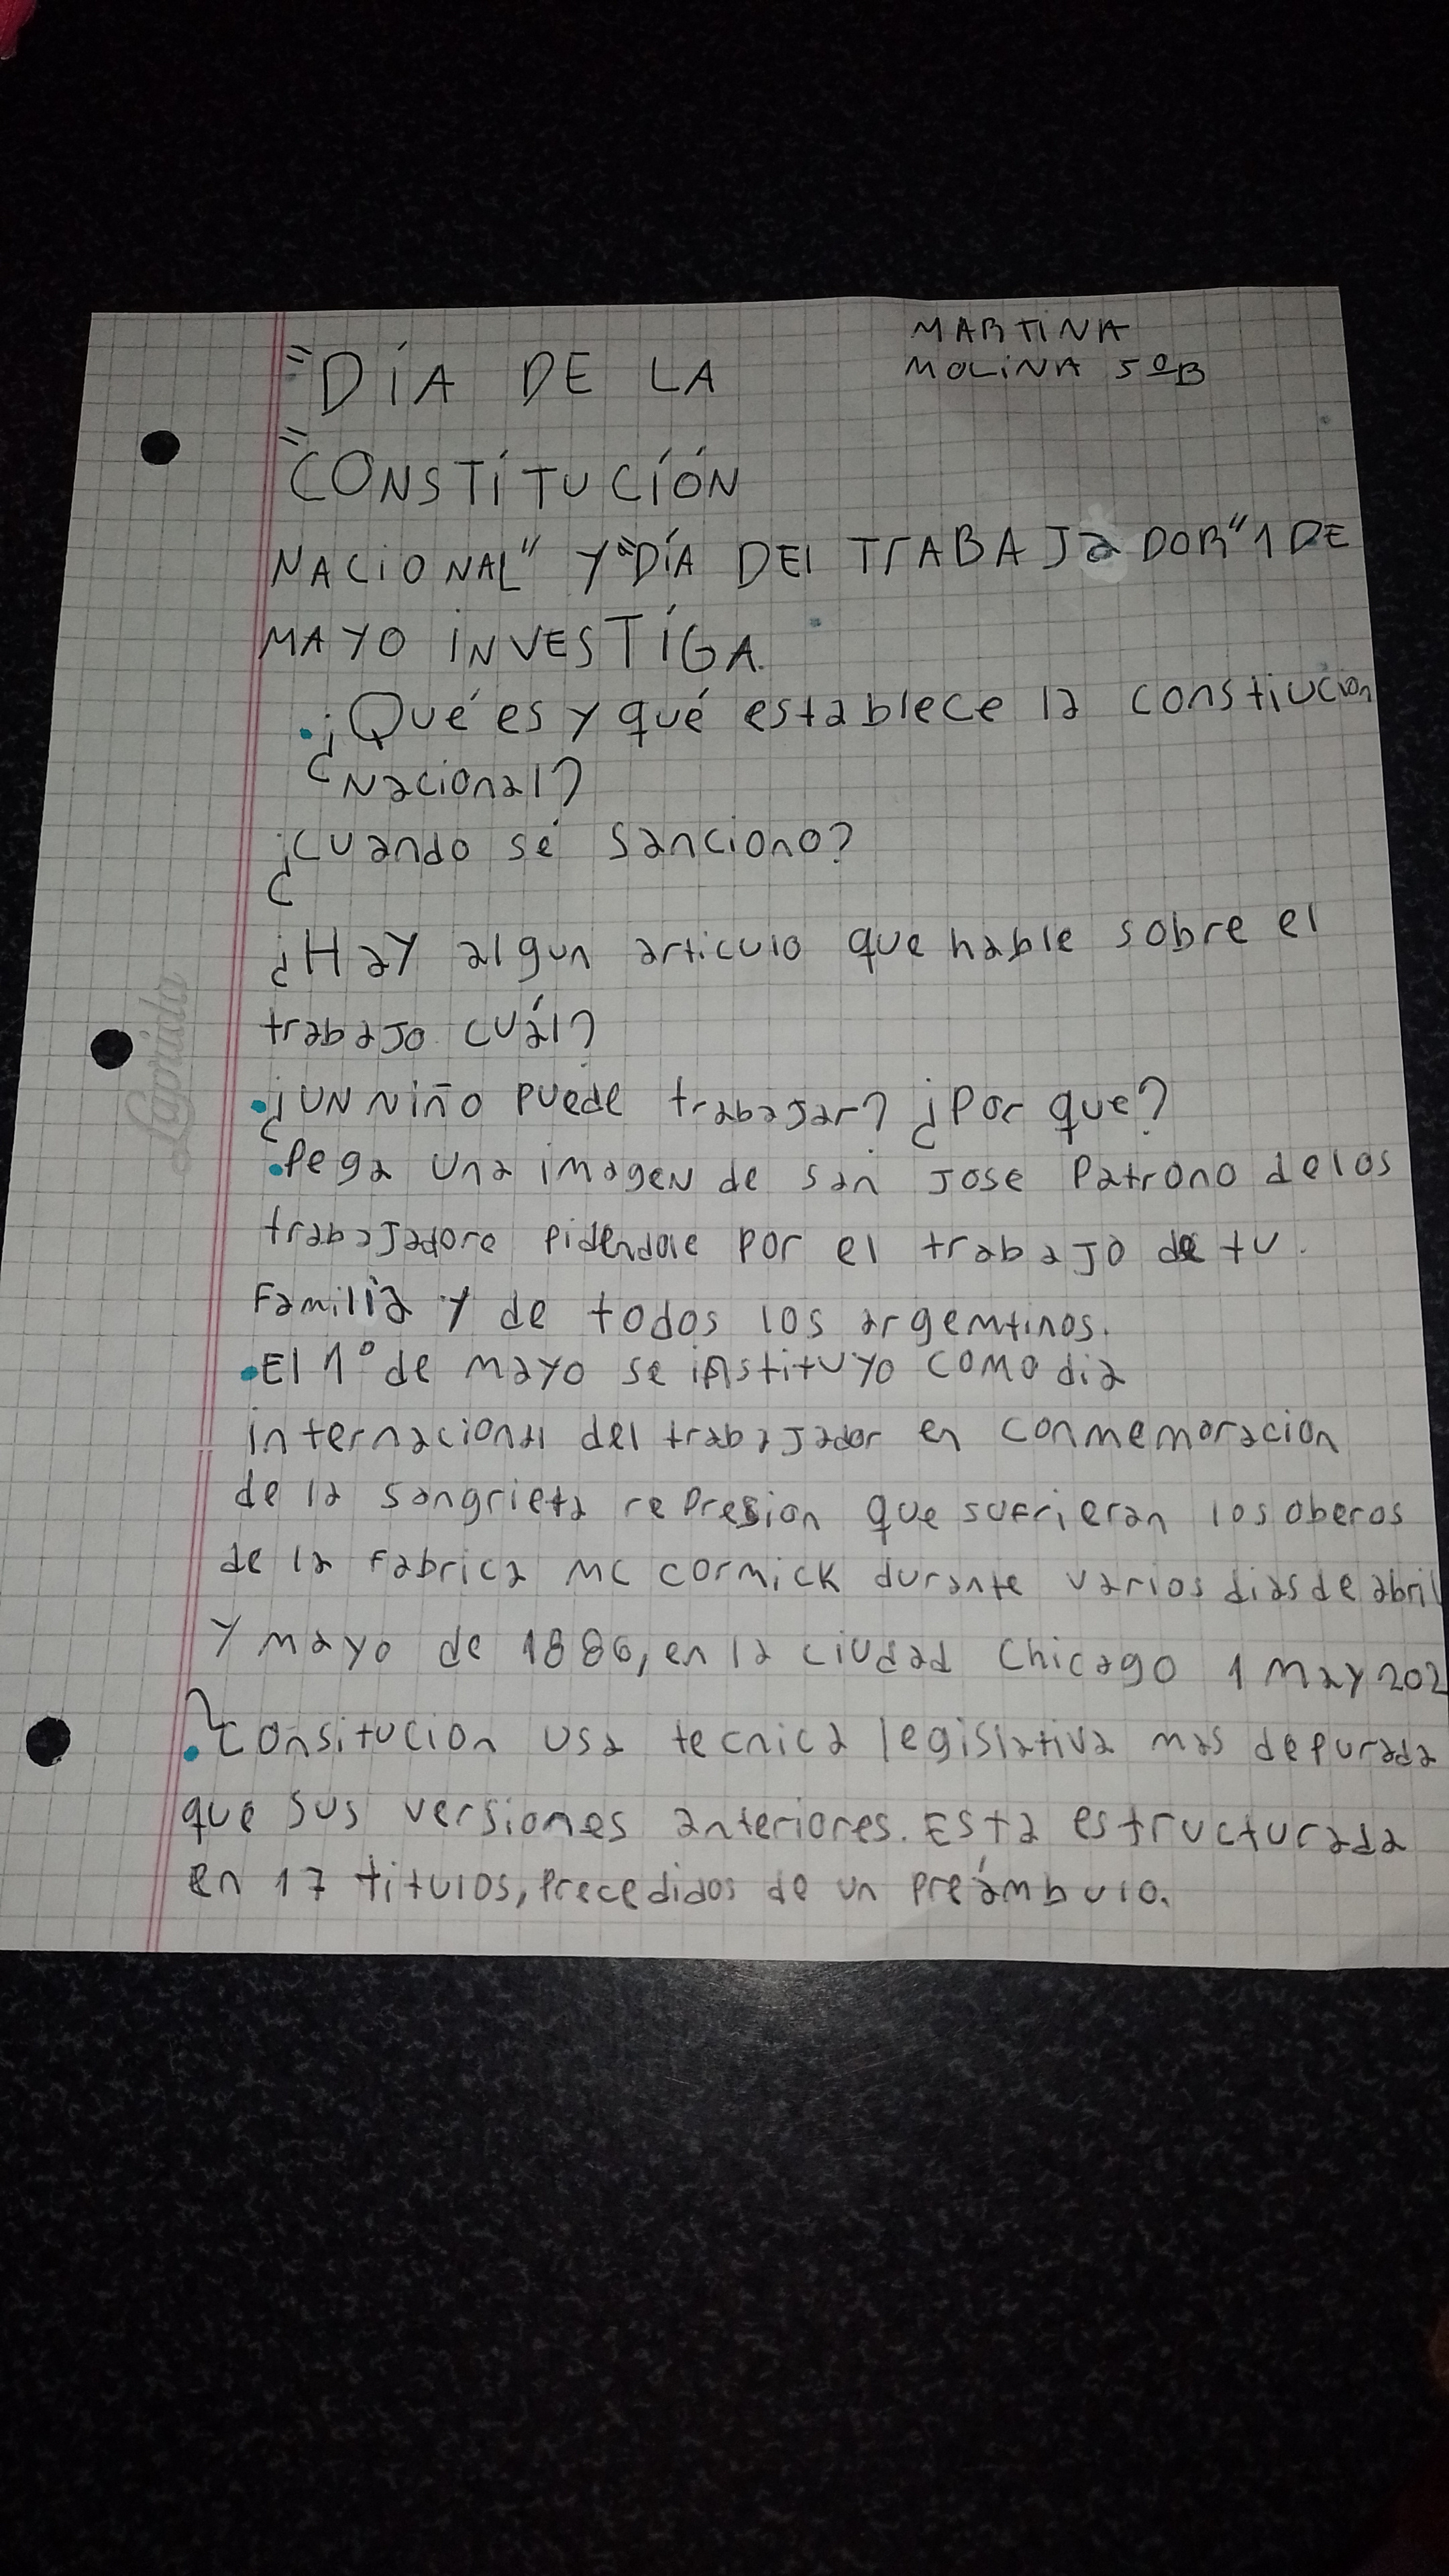 MARTINA
MOLINA 5ºB
"DÍA DE LA
"CONSTITUCIÓN
NACIONAL" Y "DÍA DEL TRABAJADOR" 1 DE
MAYO INVESTIGA.
• ¿Qué es y qué establece la constiucion
¿Nacional?
¿Cuando se sanciono?
¿Hay algun articulo que hable sobre el
trabajo cuál?
• ¿UN Niño puede trabajar? ¿Por que?
• Pega una imagen de san Jose Patrono de los
trabajadore pidendole por el trabajo de tu
Familia y de todos los argemtinos.
• El 1º de mayo se instituyo como dia
internacional del trabajador en conmemoracion
de la sangrieta represion que sufrieran los oberos
de la Fabrica MC cormick durante varios dias de abril
y mayo de 1886, en la ciudad Chicago 1 may 202
• Consitucion usa tecnica legislativa mas depurada
que sus versiones anteriores. Esta estructurada
en 17 titulos, precedidos de un preámbulo.
Laprida